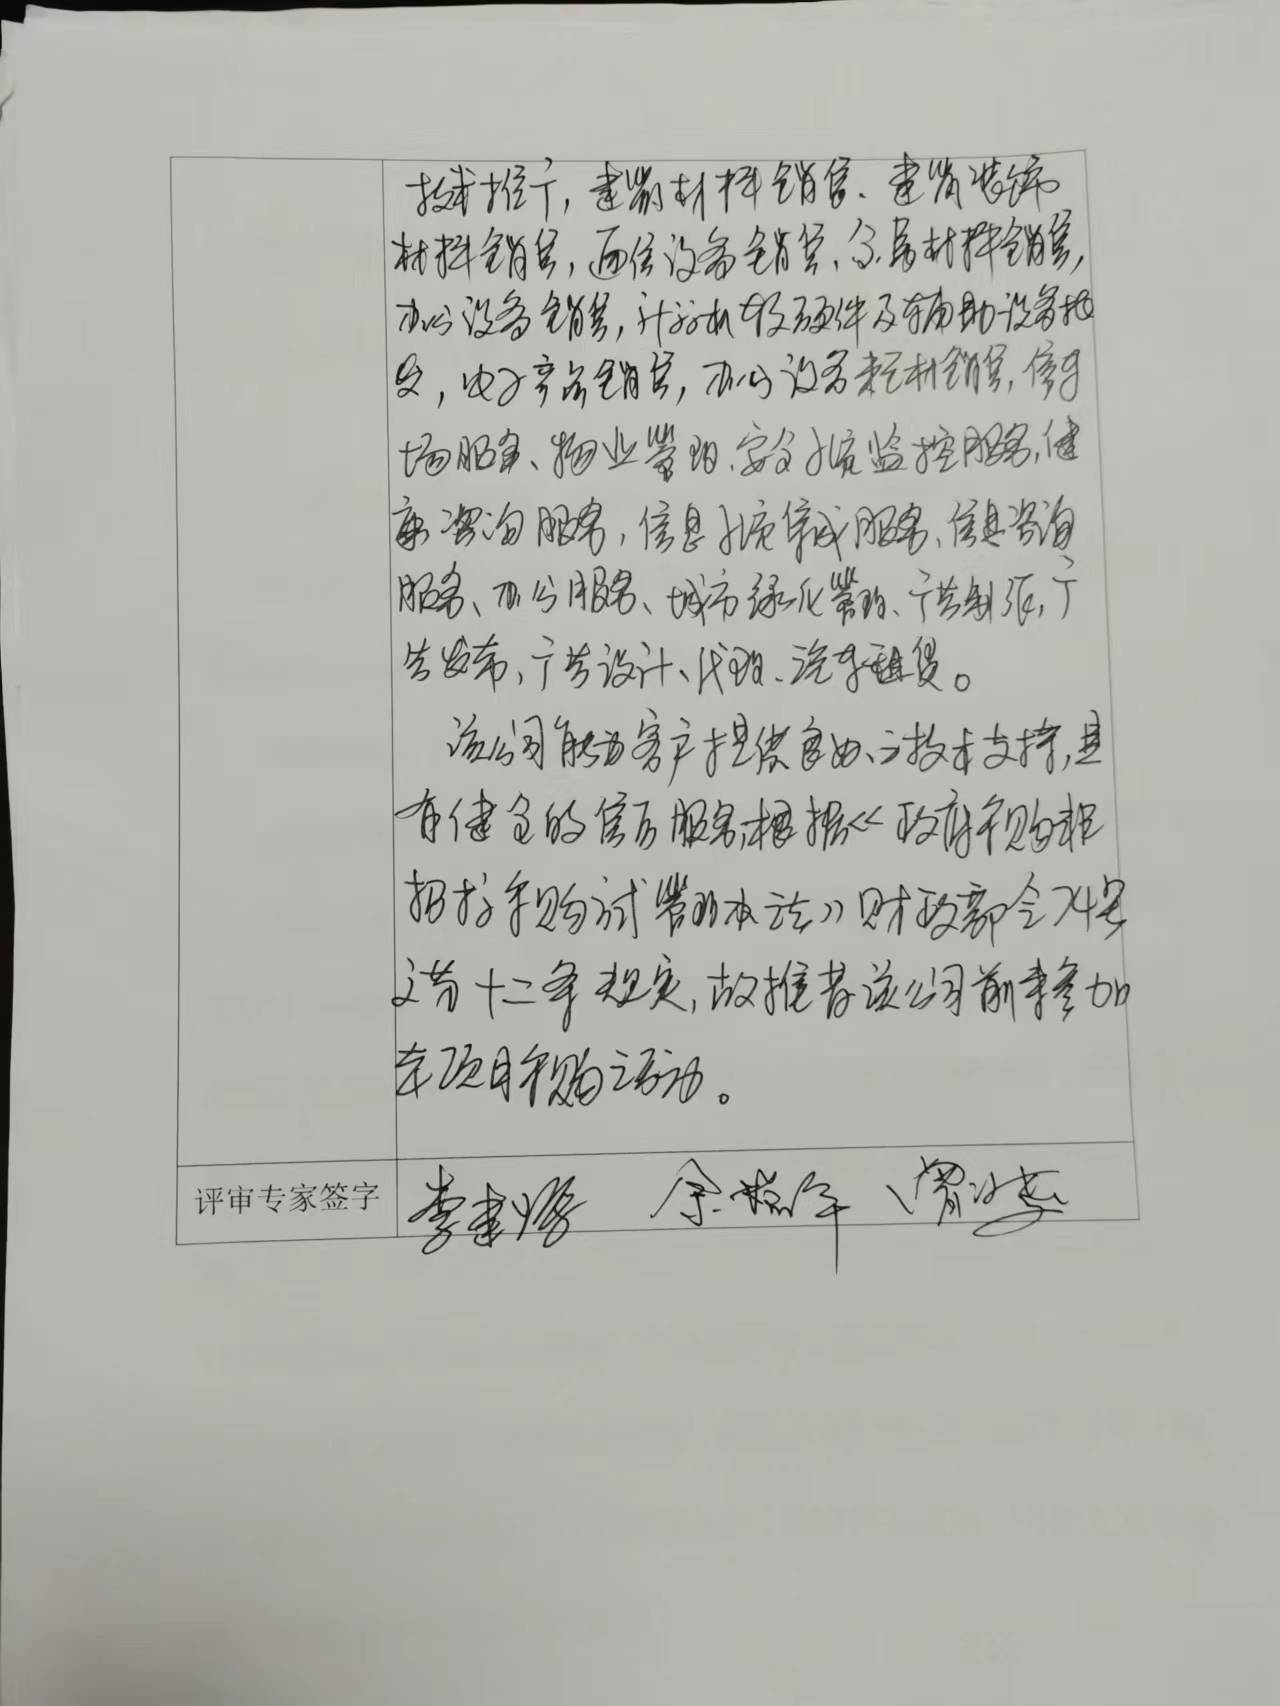 技术推广，建筑材料销售、建筑装饰
材料销售，通信设备销售、金属材料销售，
办公设备销售，计算机软硬件及辅助设备批
发，电子产品销售，办公设备耗材销售，停车
场服务、物业管理、安全系统监控服务，健
康咨询服务，信息系统集成服务、信息咨询
服务、办公服务、城市绿化管理、广告制作，广
告发布，广告设计、代理、汽车租赁。
该公司能为客户提供良好的技术支持，具
有健全的售后服务，根据《政府采购非
招标采购方式管理办法》财政部令74号
文第十二条规定，故推荐该公司前来参加
本项目采购活动。
评审专家签字